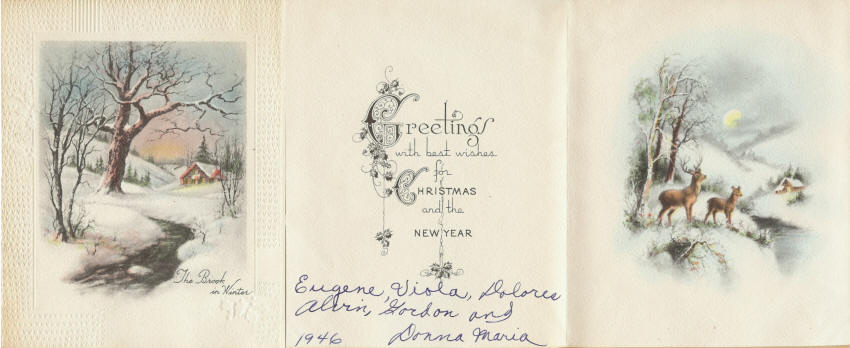 The Brook
in Winter
Greetings
with best wishes
for
CHRISTMAS
and the
NEW YEAR
Eugene, Viola, Dolores
Alvin, Gordon and
1946 Donna Maria